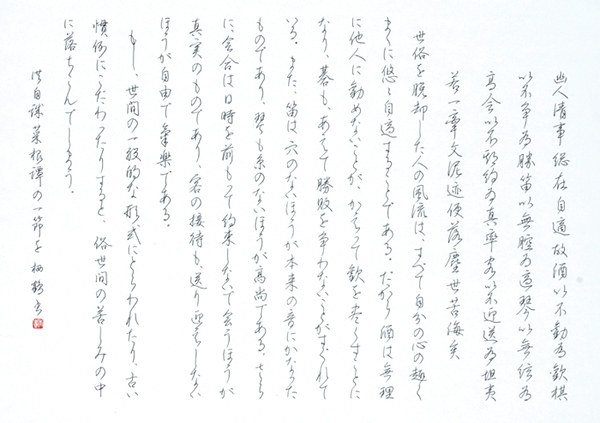 幽人清事総在自適故酒以不勧為歓棋
以不争為勝笛以無腔為適琴以無絃為
高会以不期約為真率客以不迎送為坦夷
若一牽文泥迹便落塵世苦海矣
世俗を脱却した人の風流は、すべて自分の心の趣く
ままに悠々自適することである。だから酒は無理
に他人に勧めないことが、かえって歓を尽くすことに
なり、碁も、あえて勝敗を争わないことがすぐれて
いる。また、笛は穴のないほうが本来の音にかなった
ものであり、琴も糸のないほうが高尚である。さら
に、会合は日時を前もって約束しないで会うほうが
真実のものであり、客の接待も送り迎えをしない
ほうが自由で気楽である。
もし、世間の一般的な形式にとらわれたり、古い
慣例にこだわったりすると、俗世間の苦しみの中
に落ちこんでしまう。
洪自誠 菜根譚の一節を